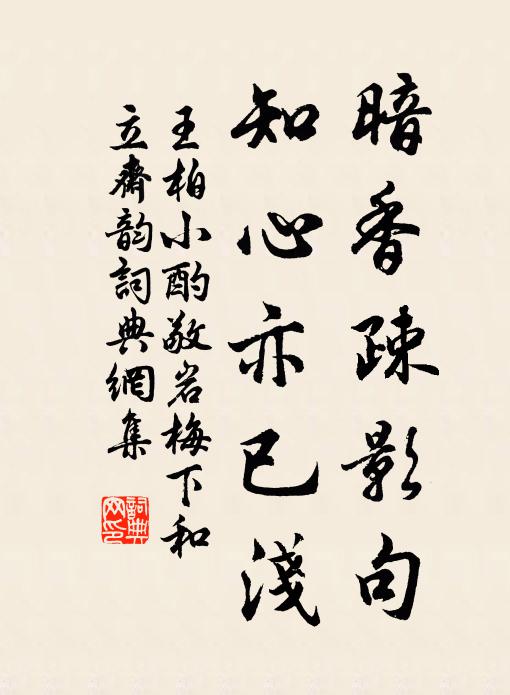 暗香疎影句
知心亦已淺
王柏小酌敬岩梅下和
立齋韵詞典網集
詞典
网印